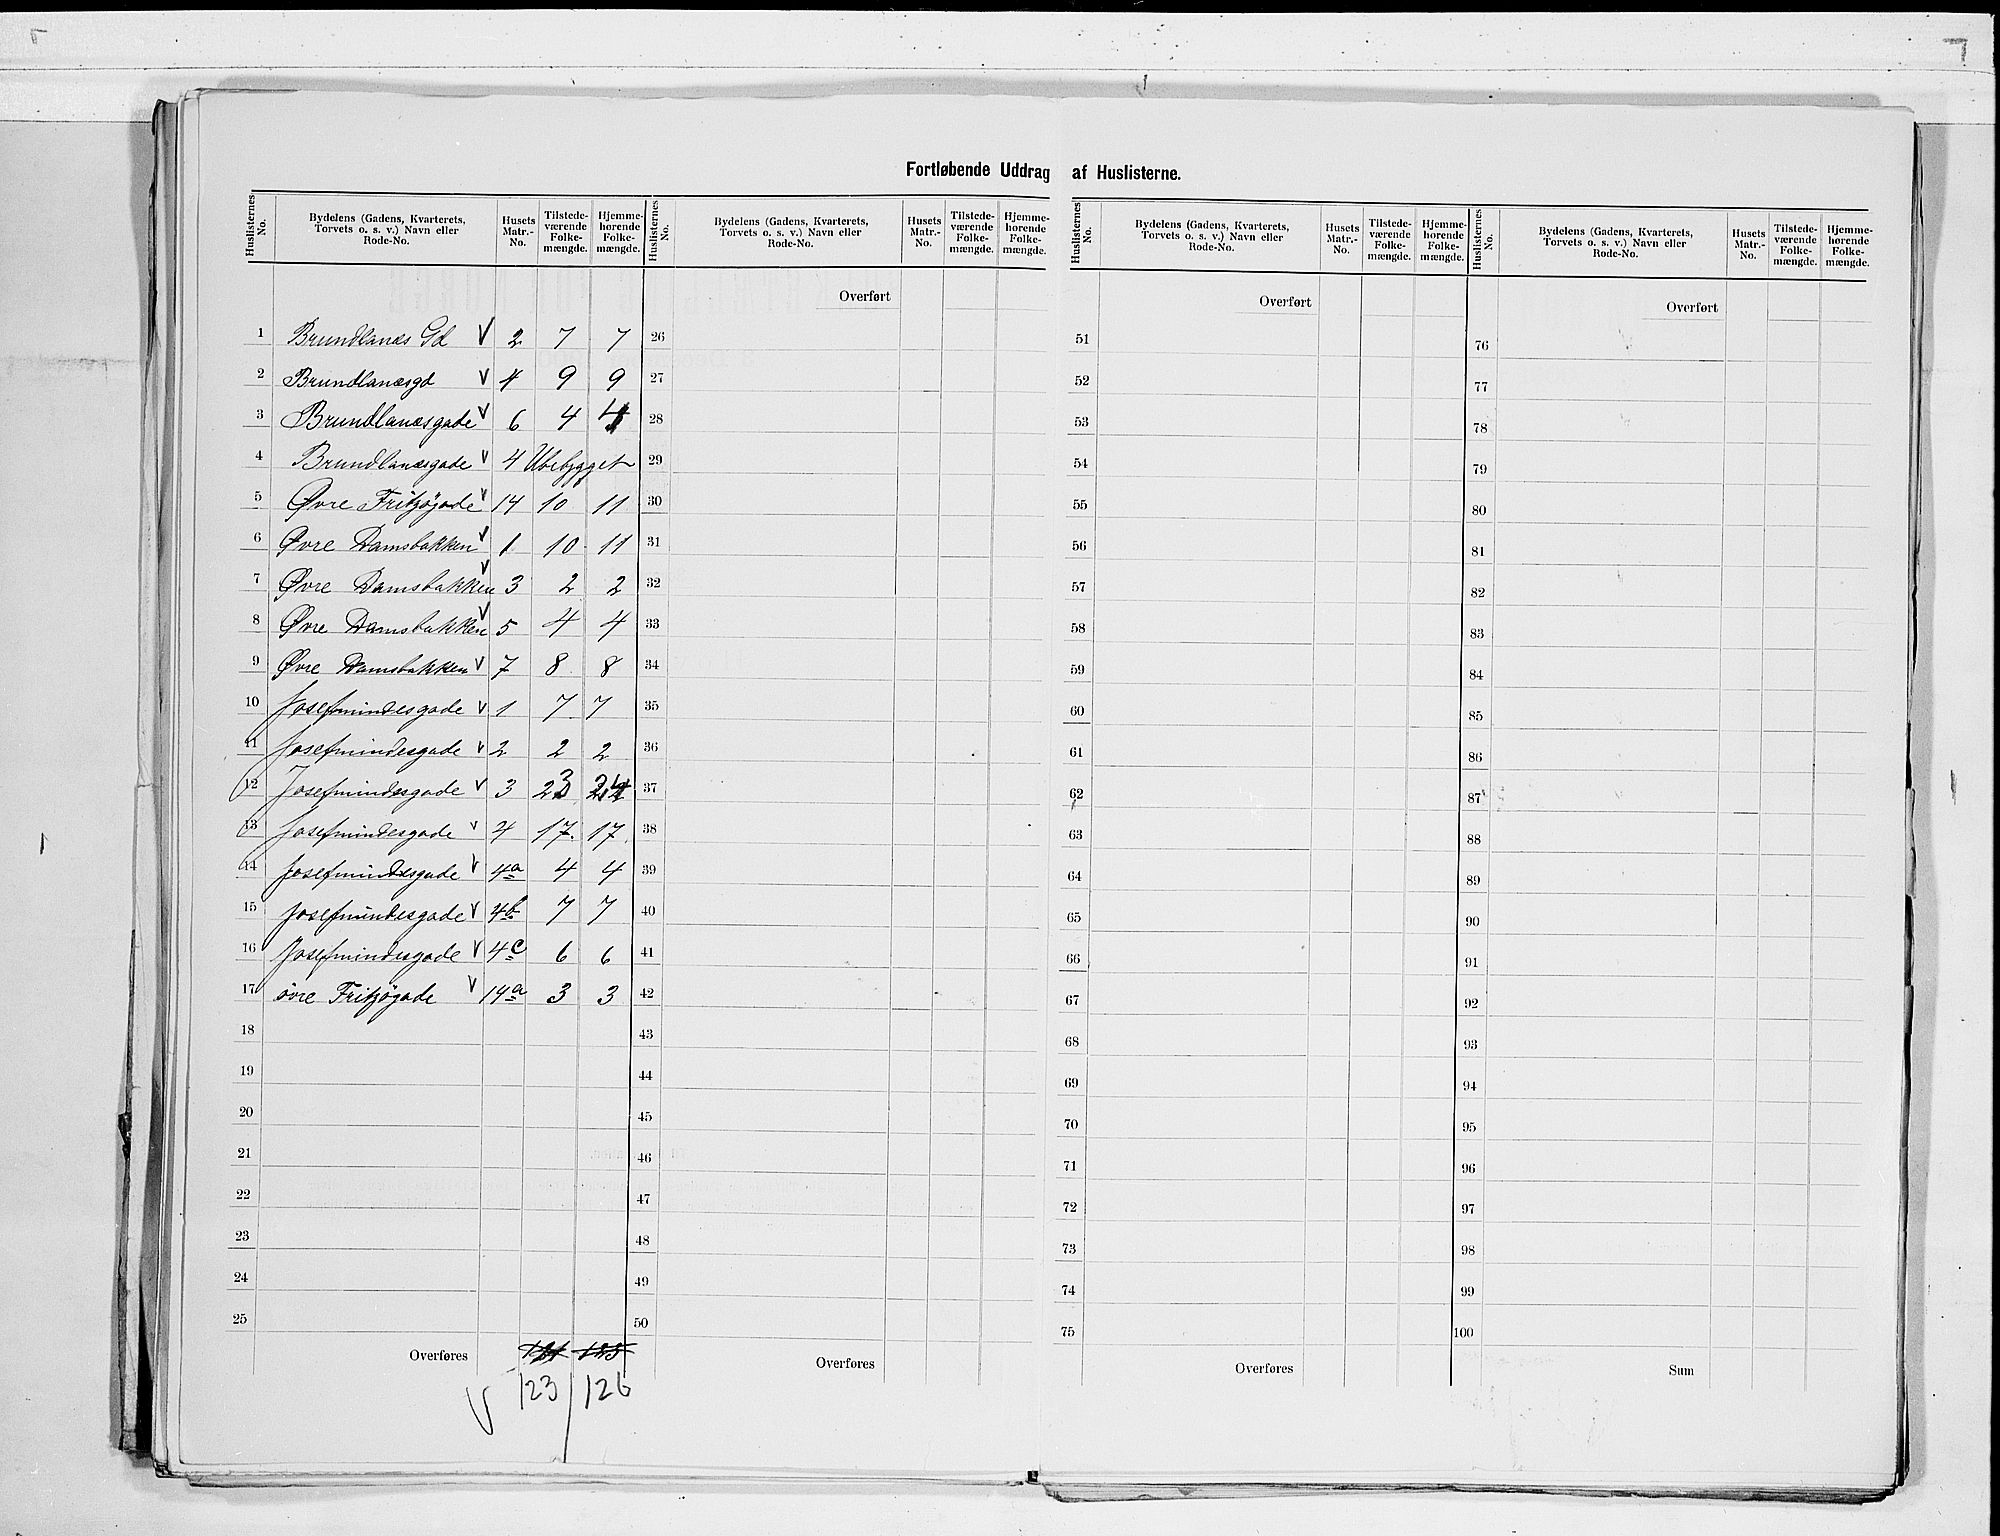 Fortløbende Uddrag af Huslisterne.
Huslisternes No. | Bydelens (Gadens, Kvarterets, Torvets o. s. v.) Navn eller Rode-No. | Husets Matr.-No. | Tilstedeværende Folkemængde. | Hjemmehørende Folkemængde. | Huslisternes No. | Bydelens (Gadens, Kvarterets, Torvets o. s. v.) Navn eller Rode-No. | Husets Matr.-No. | Tilstedeværende Folkemængde. | Hjemmehørende Folkemængde. | Huslisternes No. | Bydelens (Gadens, Kvarterets, Torvets o. s. v.) Navn eller Rode-No. | Husets Matr.-No. | Tilstedeværende Folkemængde. | Hjemmehørende Folkemængde. | Huslisternes No. | Bydelens (Gadens, Kvarterets, Torvets o. s. v.) Navn eller Rode-No. | Husets Matr.-No. | Tilstedeværende Folkemængde. | Hjemmehørende Folkemængde.
Overført Overført Overført
1 Brundlanæs Gd V 2 7 7 26 51 76
2 Brundlanæsgd V 4 9 9 27 52 77
3 Brundlanæsgade V 6 4 4 28 53 78
4 Brundlanæsgade V 4 Ubebygget 29 54 79
5 Øvre Fritzøgade V 14 10 11 30 55 80
6 Øvre Damsbakken V 1 10 11 31 56 81
7 Øvre Damsbakken V 3 2 2 32 57 82
8 Øvre Damsbakken V 5 4 4 33 58 83
9 Øvre Damsbakken V 7 8 8 34 59 84
10 Josefmindesgade V 1 7 7 35 60 85
11 Josefmindesgade V 2 2 2 36 61 86
12 Josefmindesgade V 3 23 24 37 62 87
13 Josefmindesgade V 4 17 17 38 63 88
14 Josefmindesgade V 4a 4 4 39 64 89
15 Josefmindesgade V 4b 7 7 40 65 90
16 Josefmindesgade V 4c 6 6 41 66 91
17 övre Fritzøgade V 14a 3 3 42 67 92
18 43 68 93
19 44 69 94
20 45 70 95
21 46 71 96
22 47 72 97
23 48 73 98
24 49 74 99
25 50 75 100
Overføres Overføres Overføres Sum
V 123 126